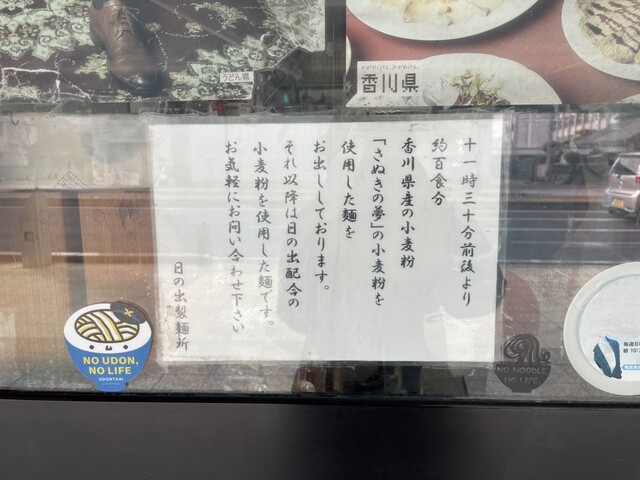 うどん県
香川県
十一時三十分前後より
約百食分
香川県産の小麦粉
「さぬきの夢」の小麦粉を
使用した麺を
お出ししております。
それ以降は日の出配合の
小麦粉を使用した麺です。
お気軽にお問い合わせ下さい
日の出製麺所
NO UDON,
NO LIFE
UDONTAXI
NO NOODLE
NO LIFE